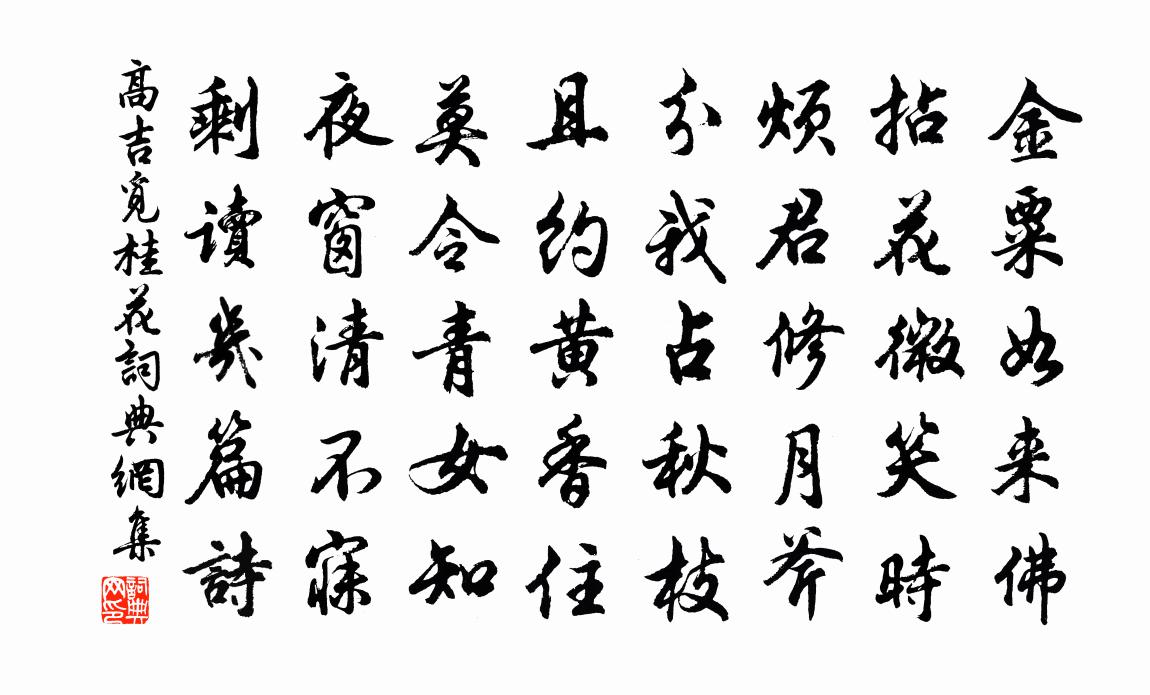 金粟如来佛
拈花微笑時
煩君修月斧
分我占秋枝
且約黄香住
莫令青女知
夜窗清不寐
剩讀幾篇詩
高吉覓桂花詞典網集
詞典網印